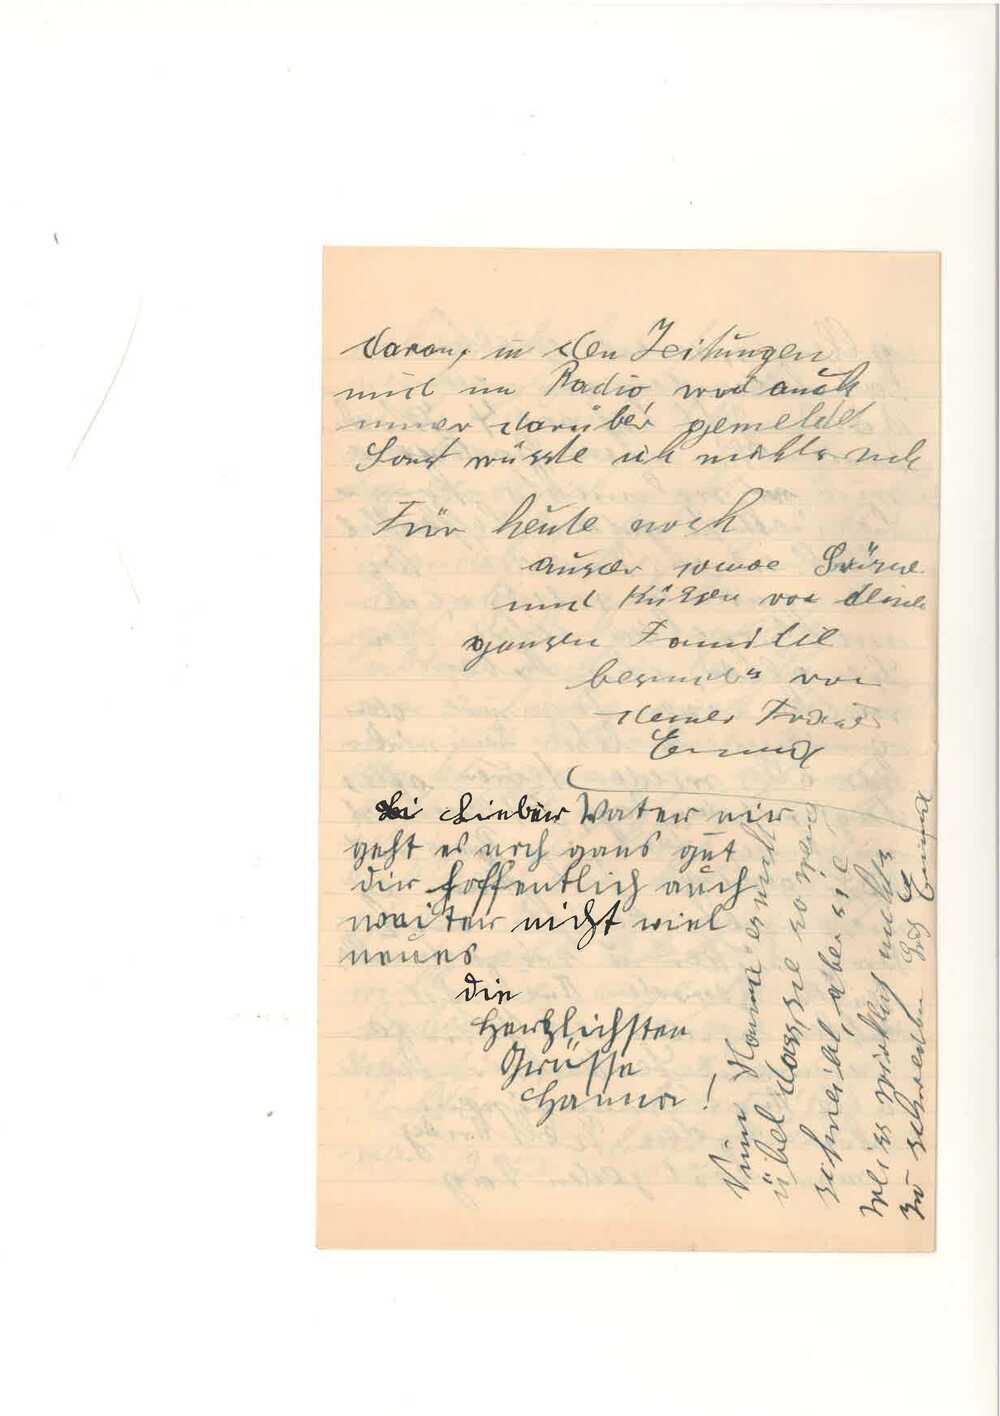 daran, in den Zeitungen
und im Radio wird auch
immer darüber gemeldet
Sonst wüsste ich nichts
Für heute noch
Grüsse
und Küssen von deiner
ganzen Familie
besonders von
deiner Frau
Lieber Vater mir
geht es noch gans gut
dir hoffentlich auch
weiter nicht viel
neues
die
Herzlichsten
Grüsse
Hanna!
Nimm Hanna es nicht
übel dass, sie so wenig
schreibt, aber sie
weiss wirklich nichts
zu schreiben